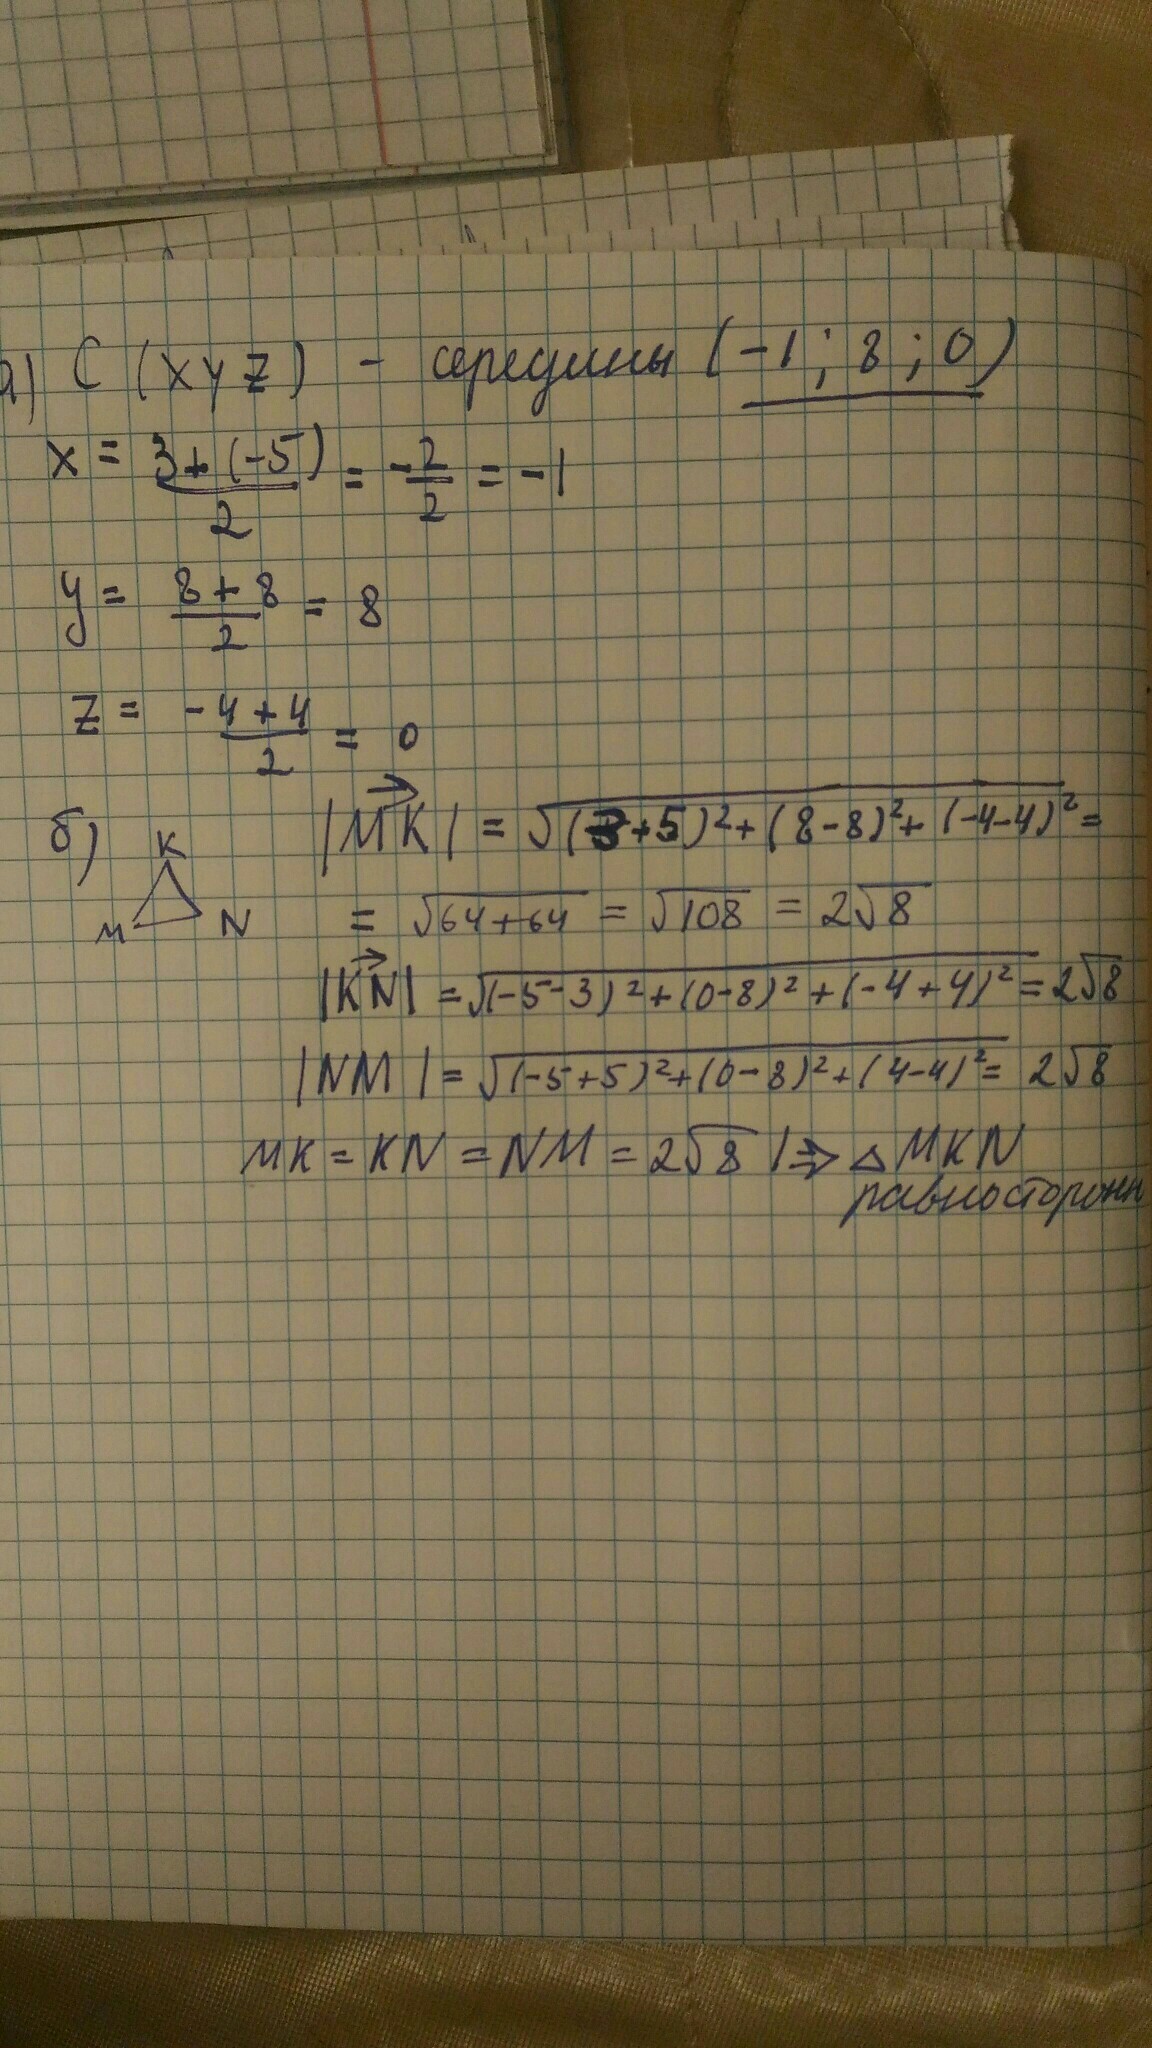 а) C (x y z) - середины (-1; 8; 0)
x = 3+(-5)/2 = -2/2 = -1
y = 8+8/2 = 8
z = -4+4/2 = 0
б) |MK| = √(3+5)²+(8-8)²+(-4-4)² =
K
M N
= √64+64 = √108 = 2√8
|KN| = √(-5-3)²+(0-8)²+(-4+4)² = 2√8
|NM| = √(-5+5)²+(0-8)²+(4-4)² = 2√8
MK = KN = NM = 2√8 |⇒ △MKN
равносторонн